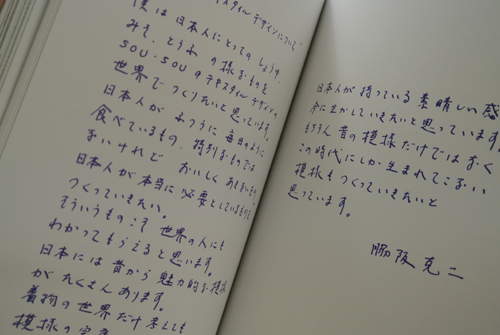 テキスタイルデザインについて
僕は日本人にとってのしょうゆ、
みそ、とうふの様なものを
SOU・SOUのテキスタイルデザインの
世界でつくりたいと思っています。
日本人がふつうに毎日のように
食べているもの、特別なものでは
ないけれど おいしく
日本人が本当に必要としているものを
つくっていきたい。
そういうものこそ世界の人にも
わかってもらえると思います。
日本には昔から魅力的な模様
がたくさんあります。
着物の世界だけ考えても
模様の宝庫
日本人が持っている素晴しい感
性を生かしていきたいと思っています。
もちろん昔の模様だけではなく
この時代にしか生まれてこない
模様もつくっていきたいと
思っています。
脇阪克二